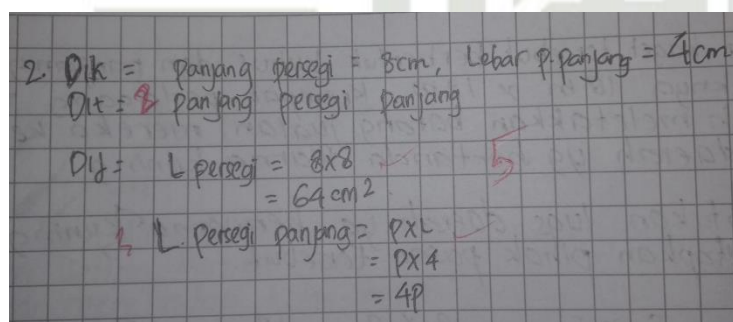 2. Dik = panjang persegi = 8cm, Lebar p.panjang = 4cm
Dit = panjang persegi panjang
Dij = L persegi = 8x8
= 64 cm²
5
L. persegi panjang = PxL
= Px4
= 4P